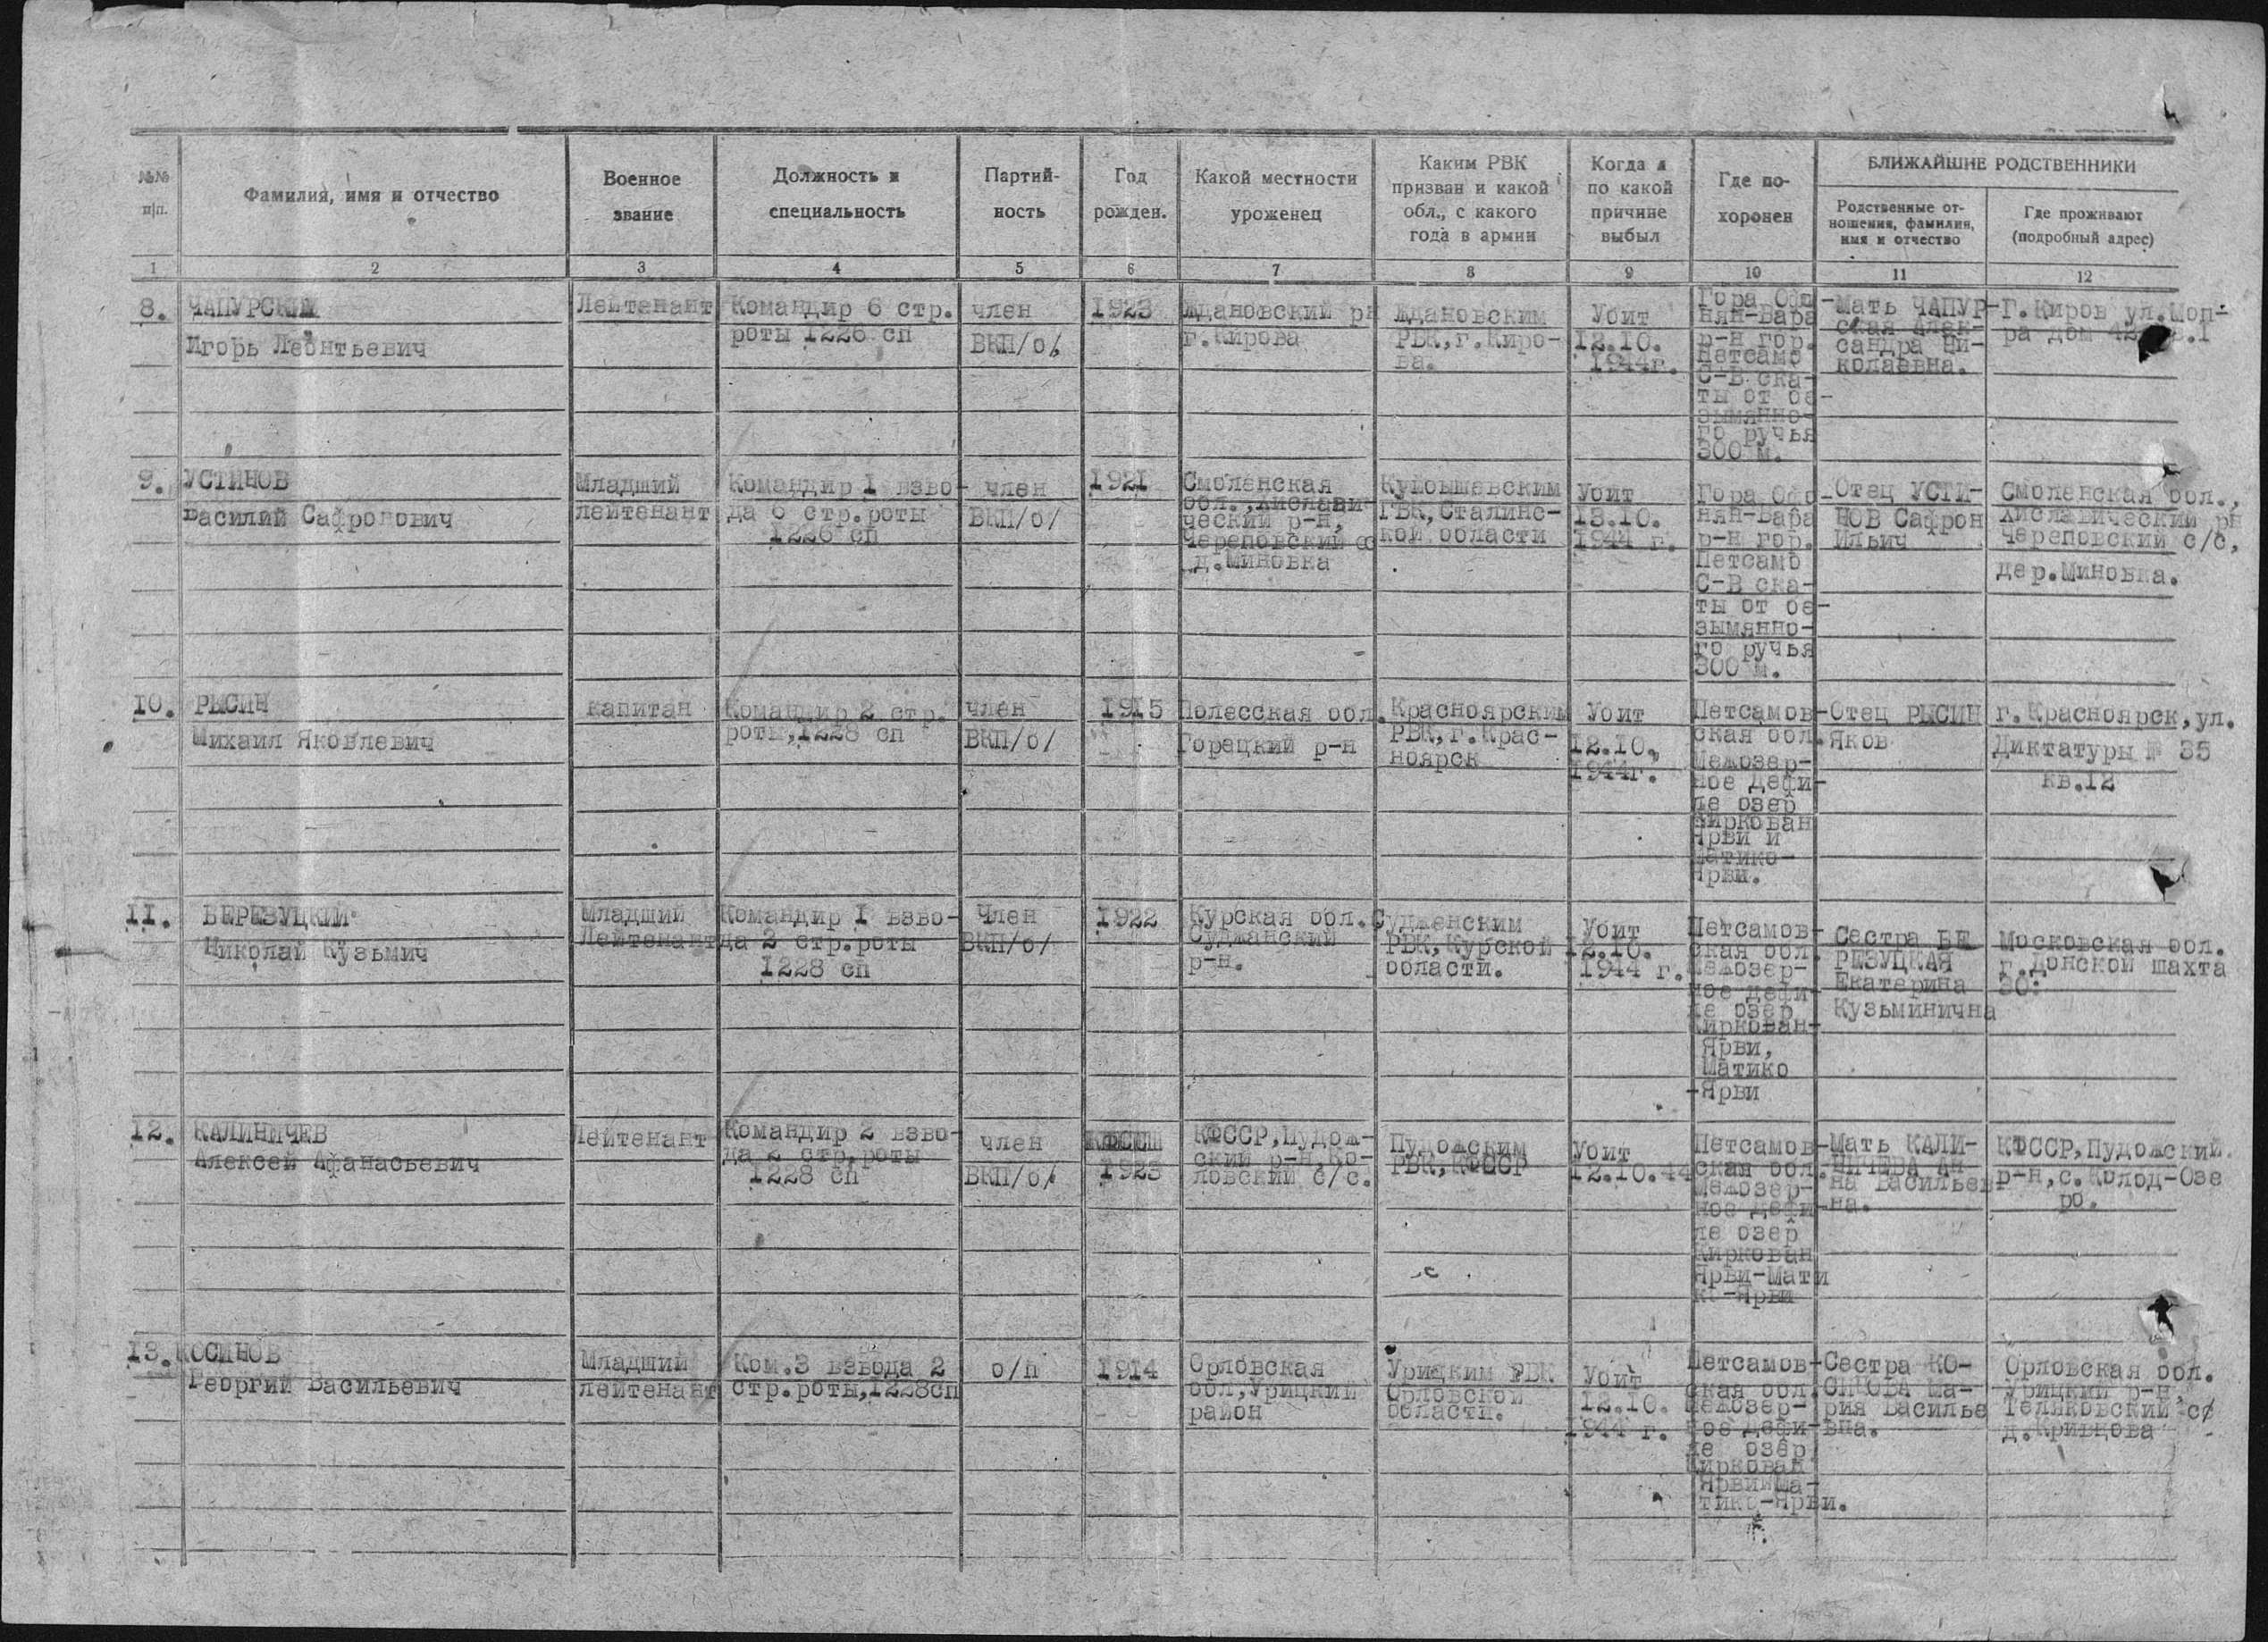 №№ п|п.
Фамилия, имя и отчество
Военное
звание
Должность и
специальность
Партий-
ность
Год
рожден.
Какой местности
уроженец
Каким РВК
призван и какой
обл., с какого
года в армии
Когда и
по какой
причине
выбыл
Где по-
хоронен
БЛИЖАЙШИЕ РОДСТВЕННИКИ
Родственные от-
ношения, фамилия,
имя и отчество
Где проживают
(подробный адрес)
1 2 3 4 5 6 7 8 9 10 11 12
8.
ЧАПУРСКИЙ
Игорь Леонтьевич
Лейтенант
Командир 6 стр.
роты 1226 сп
член
ВКП/б/
1923
Ждановский рн
г.Кирова
Ждановским
РВК,г.Киро-
ва.
Убит
12.10.
1944г.
Гора Офо-
нян-Вара
р-н гор.
Петсамо
С-В ска-
ты от бе-
зымянно-
го ручья
300 м.
Мать ЧАПУР-
ская Алек-
сандра Ни-
колаевна.
Г.Киров ул.Моп-
ра дом
9.
УСТИНОВ
Василий Сафронович
Младший
лейтенант
Командир 1 взво-
да 6 стр.роты
1226 сп
член
ВКП/б/
1921
Смоленская
обл.,Хислави-
ческий р-н,
Череповский с/с
д.Миновка
Куйбышевским
ГВК,Сталинс-
кой области
Убит
13.10.
1944 г.
Гора Офо-
нян-Вара
р-н гор.
Петсамо
С-В ска-
ты от бе-
зымянно-
го ручья
300 м.
Отец УСТИ-
НОВ Сафрон
Ильич
Смоленская обл.,
Хиславический рн
Череповский с/с,
дер.Миновка.
10.
РЫСИН
Михаил Яковлевич
капитан
Командир 2 стр.
роты,1228 сп
член
ВКП/б/
1915
Полесская обл.
Горецкий р-н
Красноярским
РВК,г.Крас-
ноярск
Убит
12.10.,
1944г.
Петсамов-
ская обл.
Межозер-
ное дефи-
ле озер
Киркован
Ярви и
Матико-
Ярви.
Отец РЫСИН
Яков
г.Красноярск,ул.
Диктатуры № 35
кв.12
11.
БЕРЕЗУЦКИЙ
Николай Кузьмич
Младший
Лейтенант
Командир 1 взво-
да 2 стр.роты
1228 сп
Член
ВКП/б/
1922
Курская обл.
Суджанский
р-н.
Судженским
РВК,Курской
области.
Убит
12.10.
1944 г.
Петсамов-
ская обл.
Межозер-
ное дефи-
ле озер
Киркован-
Ярви,
Матико
-Ярви
Сестра БЕ
РЕЗУЦКАЯ
Екатерина
Кузьминична
Московская обл.
г.Донской шахта
30:
12.
КАЛИНИЧЕВ
Алексей Афанасьевич
Лейтенант
Командир 2 взво-
да 2 стр.роты
1228 сп
член
ВКП/б/
1923
КФССР,Пудож-
ский р-н,Ко-
ловский с/с.
Пудожским
РВК,КФССР
Убит
12.10.44
Петсамов-
ская обл.
Межозер-
ное дефи-
ле озер
Киркован
Ярви-Мати
ко-Ярви
Мать КАЛИ-
НИЧЕВА Ан
на Васильев
на.
КФССР,Пудожский
р-н,с.Колод-Озе
ро.
13.
КОСИНОВ
Георгий Васильевич
Младший
лейтенант
Ком.3 взвода 2
стр.роты,1228сп
б/п
1914
Орловская
обл,Урицкий
район
Урицким РВК
Орловской
области.
Убит
12.10.
1944 г.
Петсамов-
ская обл.
Межозер-
ное дефи-
ле озер
Киркован
Ярви Ма-
тико-Ярви.
Сестра КО-
СИНОВА Ма-
рия Василье
вна.
Орловская обл.
Урицкий р-н,
Теляковский с/
д.Кривцова